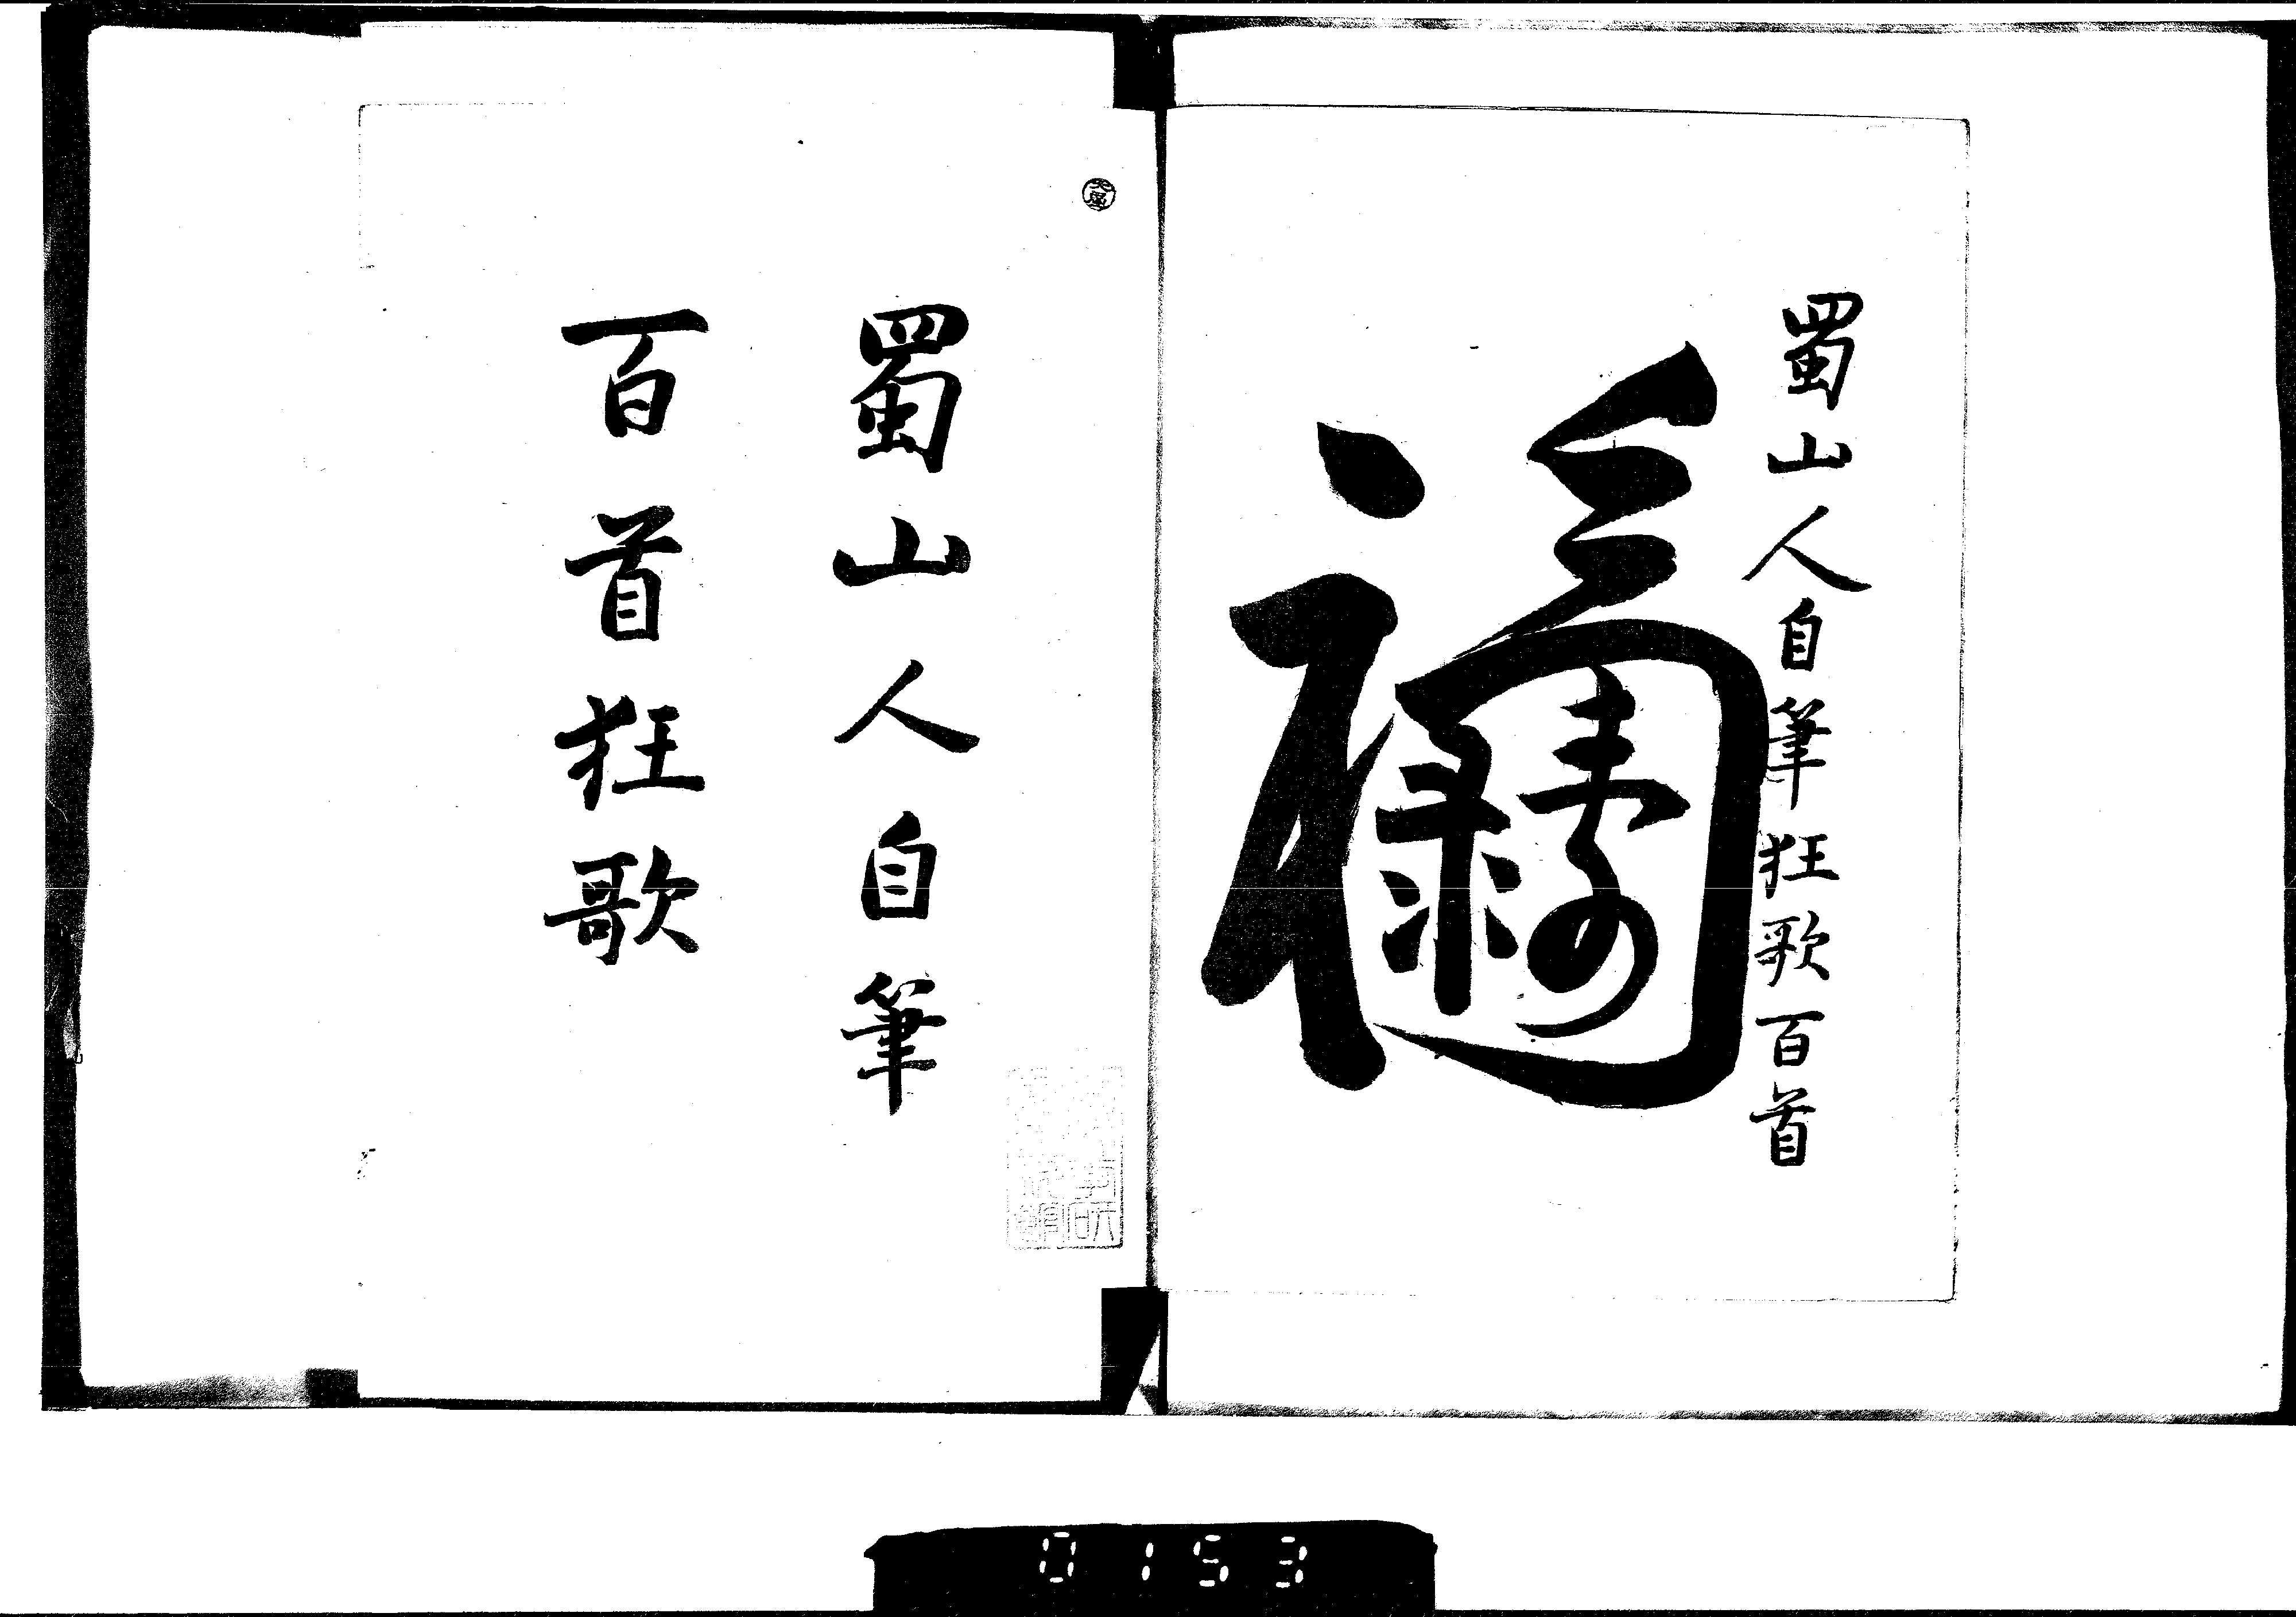 蜀山人自筆狂歌百首
福禄寿
蜀山人自筆
百首狂歌
0153